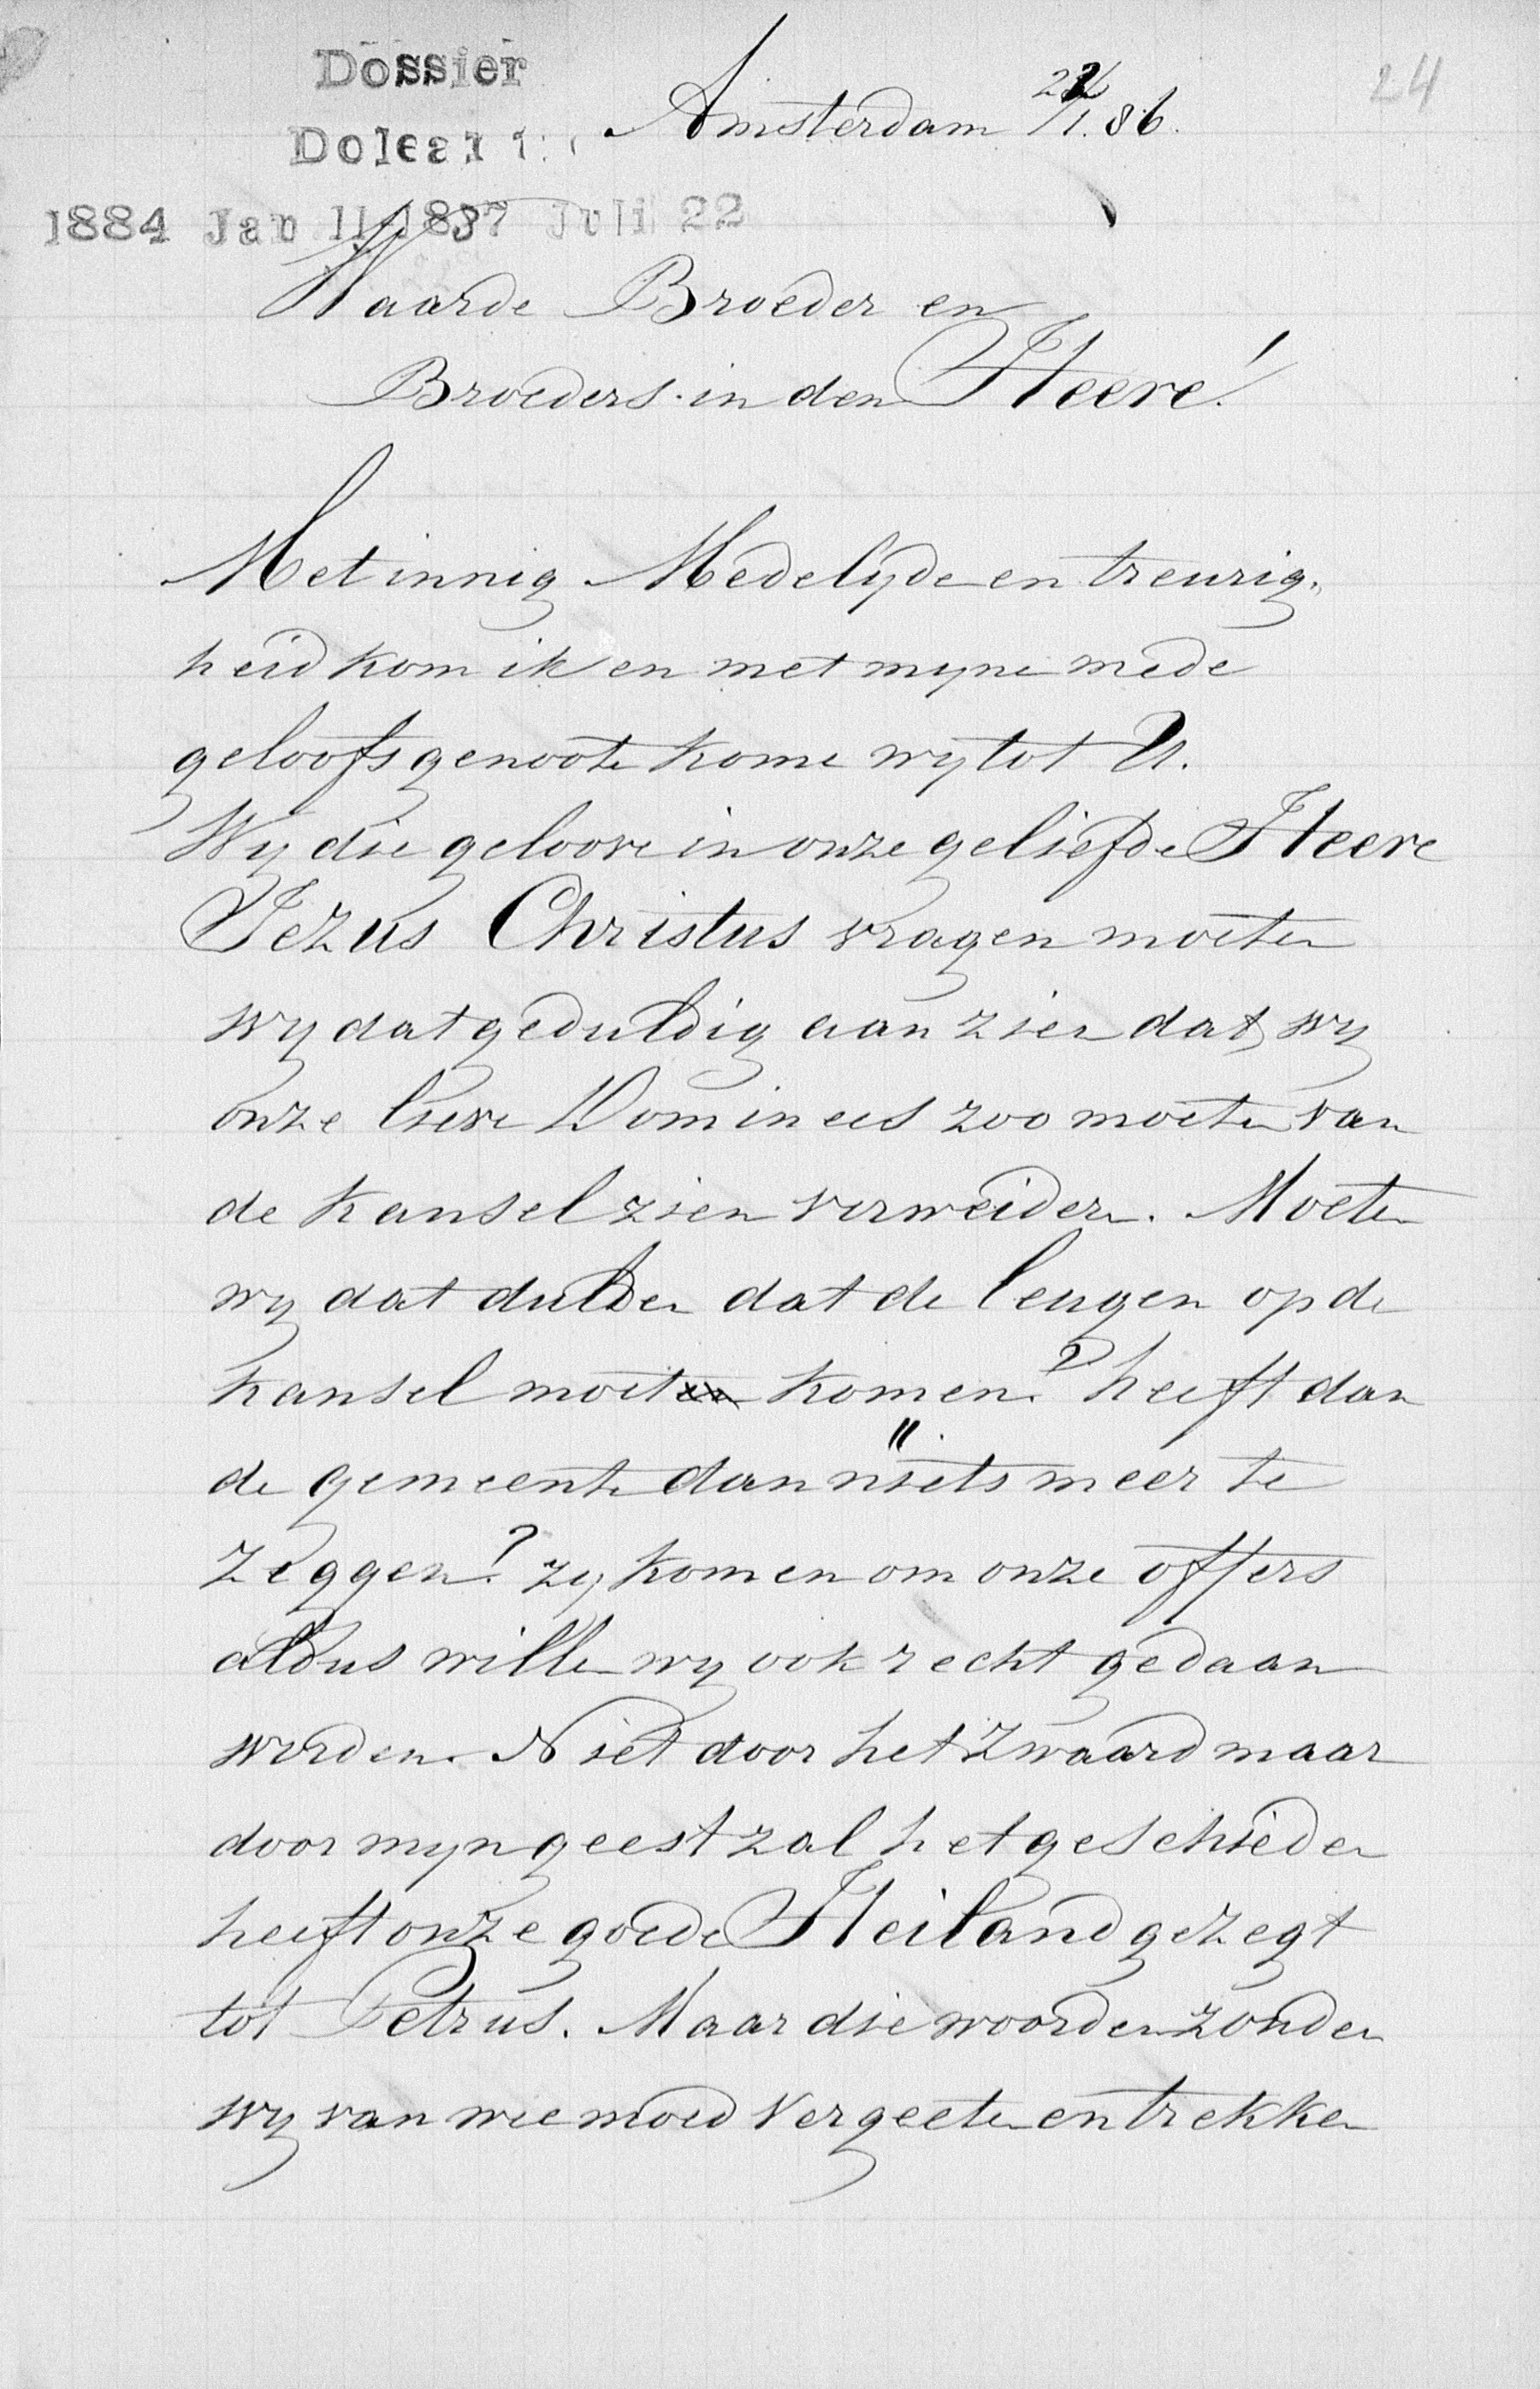 24
Dossier
Amsterdam 22/1.86.
1884 Jan 11-1887 Juli 22
Waarde Broeder en
Broeders in den Heere!
Met innig Medelyde en treurig„
heid kom ik en met myne mede
geloofsgenoote kome wy tot U.
Wy die geloove in onze geliefde Heere
Jezus Christus vragen moeten
wy dat geduldig aan zien dat wy
onze lieve Dominees zoo moeten van
de kansel zien verweideren. Moeten
wy dat dulden dat de leugen op de
kansel moet komen? heeft dan
de gemeente dan niets meer te
zeggen? zy komen om onze offers
aldus wille wy ook recht gedaan
worden. Niet door het Zwaard maar
door myn geest zal het geschieden
heeft onze goede Heiland gezegt
tot Petrus. Maar die woorden zonden
wy van weemoed vergeeten en trekken